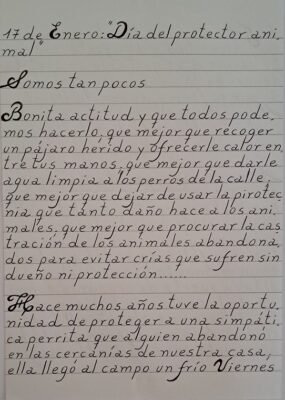 17 de Enero: "Día del protector ani.
mal"
Somos tan pocos
Bonita actitud y que todos pode.
mos hacerlo, que mejor que recoger
un pájaro herido y ofrecerle calor en
tre tus manos, que mejor que darle
agua limpia a los perros de la calle,
que mejor que dejar de usar la pirotec
nia que tanto daño hace a los ani.
males, que mejor que procurar la cas
tración de los animales abandona,
dos para evitar crías que sufren sin
dueño ni protección......
Hace muchos años tuve la oportu.
nidad de proteger a una simpáti.
ca perrita que alguien abandonó
en las cercanías de nuestra casa,
ella llegó al campo un frío Viernes